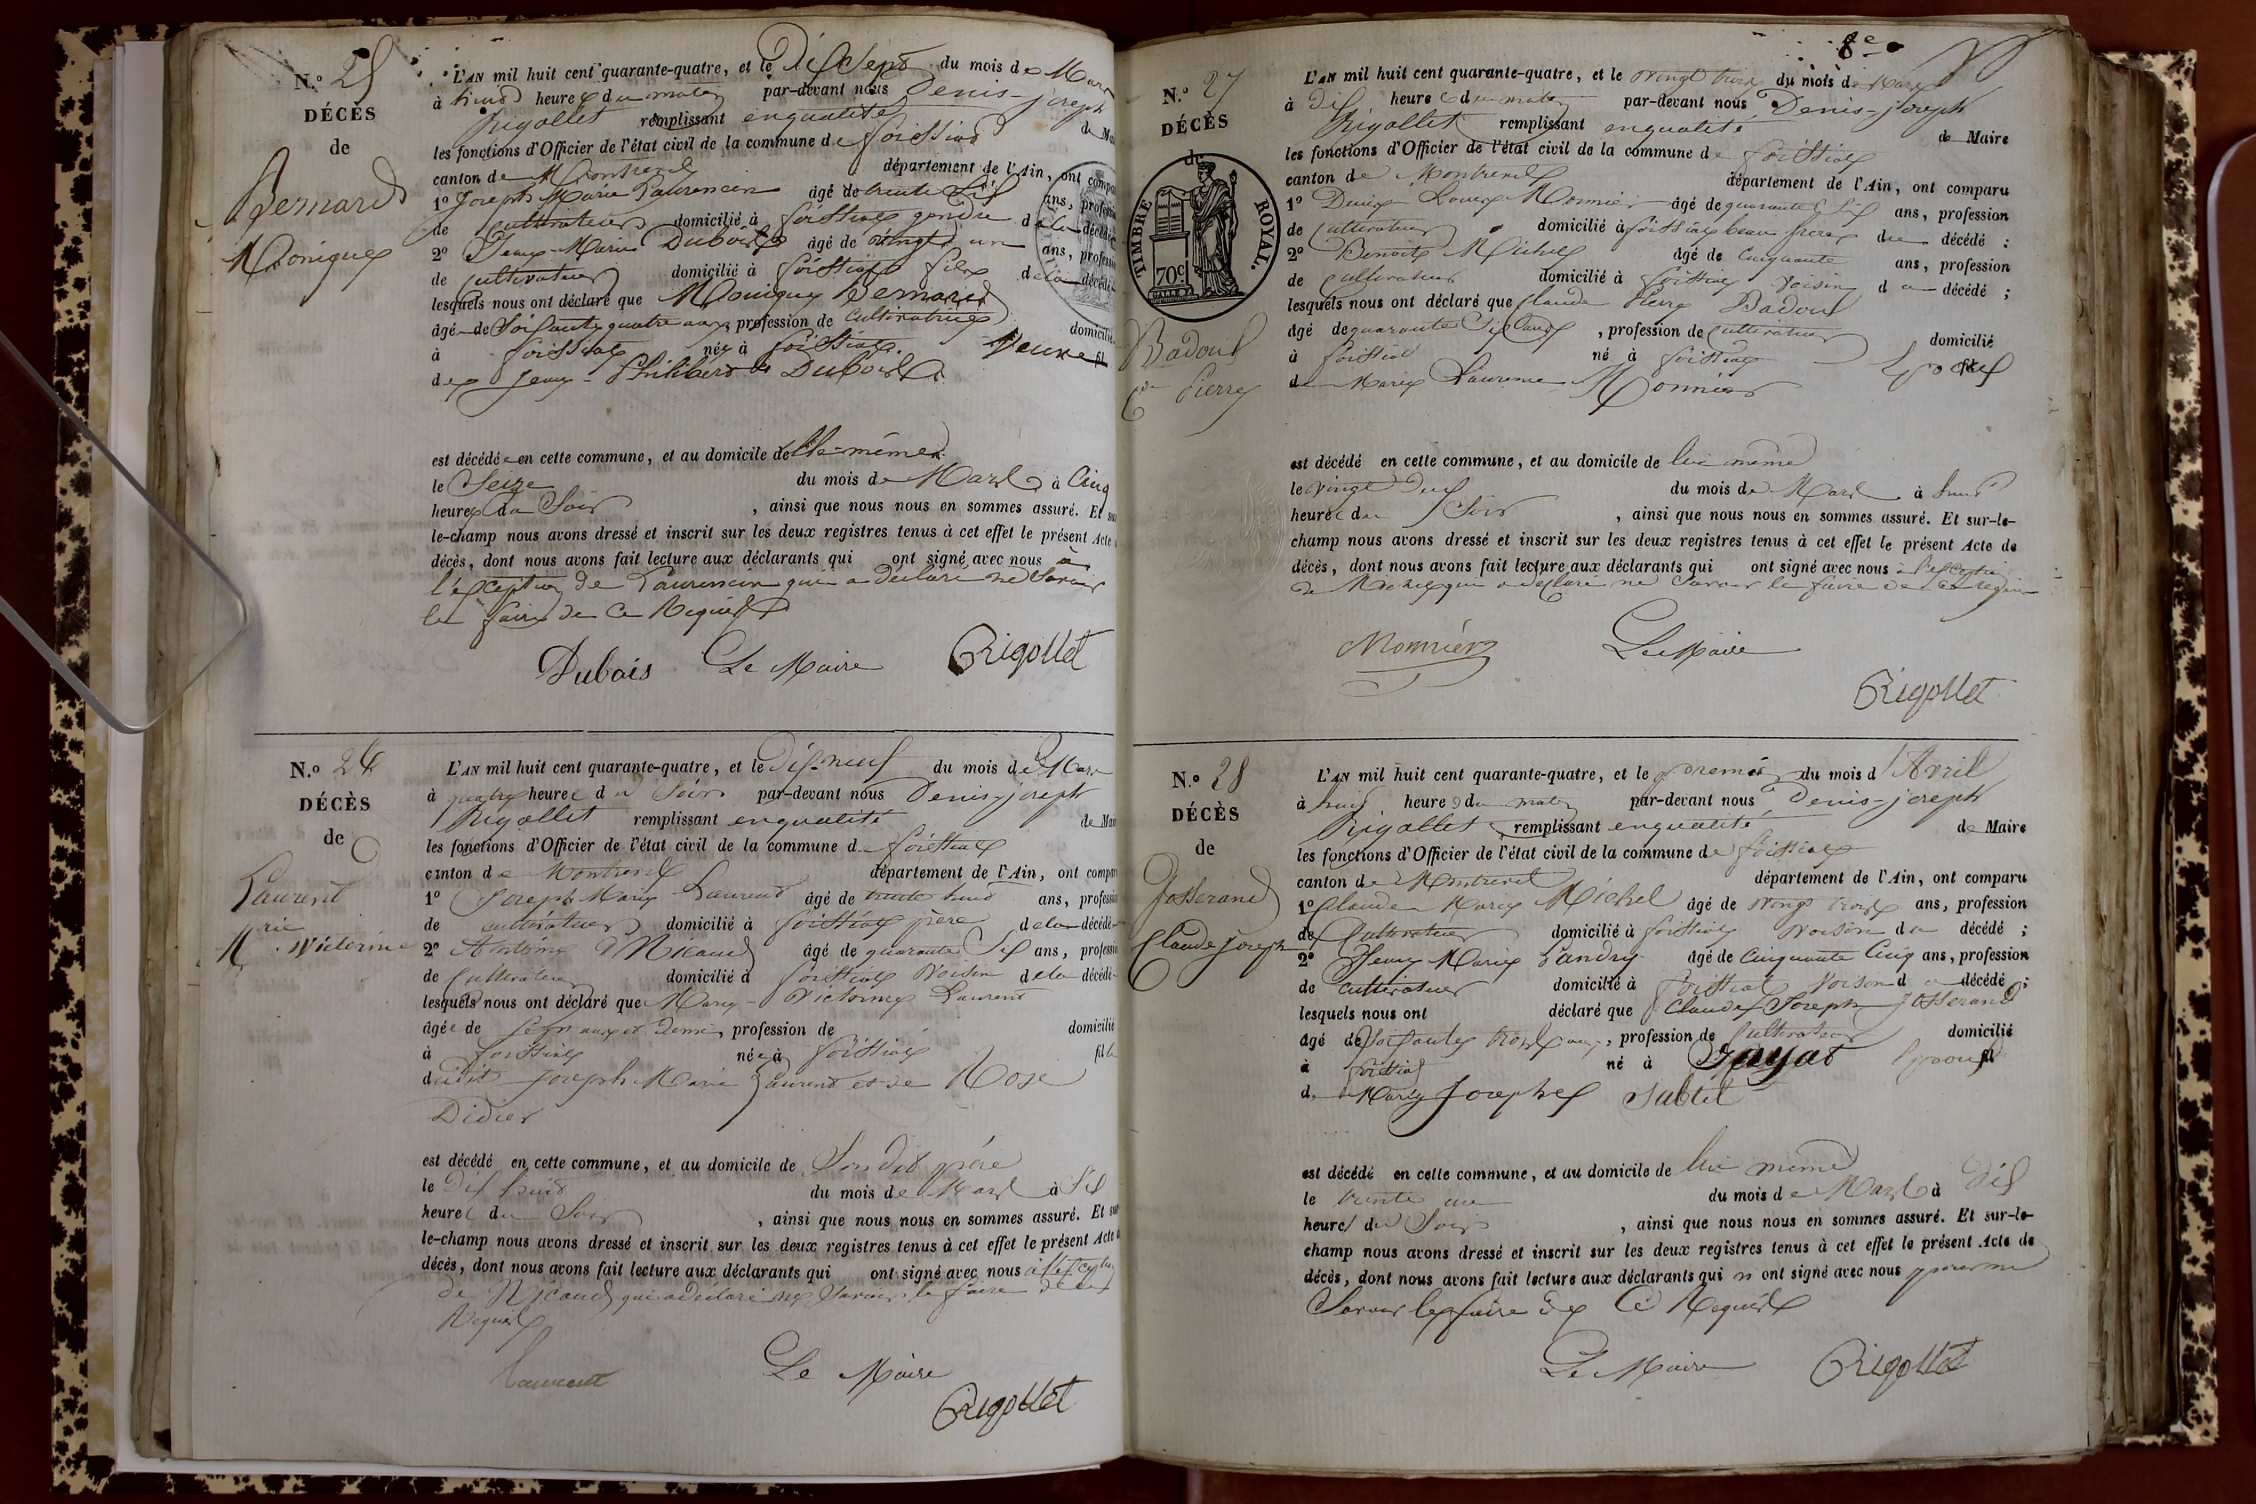 N.º 25
DÉCÈS
de
Bernard
Monique
L'AN mil huit cent quarante-quatre, et le Dix Sept du mois de Mars
à huit heures du matin par-devant nous Denis-joseph
Rigollet remplissant enqualité de Mai
les fonctions d'Officier de l'état civil de la commune de foissiat
canton de Montrevel département de l'Ain, ont compa
1º Joseph Marie Laurencin âgé de trente Six ans, profes
de cultivateur domicilié à foissiat gendre de la décédée
2º Jean-Marie Dubois âgé de vingt un ans, profess
de cultivateur domicilié à foissiat fils de la décédé
lesquels nous ont déclaré que Monique Bernard
âgé de Soixante quatre ans, profession de Cultivatrice domicilié
à foissiat née à foissiat. Veuve fil
de Jean-Philibert Dubois
est décédée en cette commune, et au domicile de Elle-même
le Seize du mois de Mars à Cinq
heures du Soir , ainsi que nous nous en sommes assuré. Et sur
le-champ nous avons dressé et inscrit sur les deux registres tenus à cet effet le présent Acte
décès, dont nous avons fait lecture aux déclarants qui ont signé avec nous à
l'exception de Laurencin qui a déclaré ne Savoir
le faire de ce Requis
Dubois Le Maire Rigollet
N.º 26
DÉCÈS
de
Laurent
Mrie Victorine
L'AN mil huit cent quarante-quatre, et le Dix-neuf du mois de Mars
à quatre heures du Soir par-devant nous Denis-joseph
Rigollet remplissant enqualité de Mai
les fonctions d'Officier de l'état civil de la commune de foissiat
canton de Montrevel département de l'Ain, ont compa
1º Joseph Marie Laurent âgé de trente huit ans, profess
de cultivateur domicilié à foissiat père de la décédé
2º Antoine Nicaud âgé de quarante Six ans, profess
de Cultivateur domicilié à foissiat Voisin de la décédé
lesquels nous ont déclaré que Marie-Victorine Laurent
âgée de Sept ans et demi, profession de domicilié
à foissiat née à foissiat fille
dudit Joseph Marie Laurent et de Rose
Didier
est décédé en cette commune, et au domicile de Son dit père
le Dix huit du mois de Mars à Six
heures du Soir , ainsi que nous nous en sommes assuré. Et sur
le-champ nous avons dressé et inscrit sur les deux registres tenus à cet effet le présent Acte
décès, dont nous avons fait lecture aux déclarants qui ont signé avec nous à l'exception
de Nicaud qui a déclaré ne Savoir le faire de ce
Requis
Laurent Le Maire
Rigollet
8e
N.º 27
DÉCÈS
de
TIMBRE ROYAL.
70c
Badoud
Cde Pierre
L'AN mil huit cent quarante-quatre, et le vingt trois du mois de Mars
à Dix heures du matin par-devant nous Denis-joseph
Rigollet remplissant enqualité de Maire
les fonctions d'Officier de l'état civil de la commune de foissiat
canton de Montrevel département de l'Ain, ont comparu
1º Denis Louis Monnier âgé de quarante Six ans, profession
de Cultivateur domicilié à foissiat beau frère du décédé ;
2º Benoit Michel âgé de Cinquante ans, profession
de Cultivateur domicilié à foissiat Voisin du décédé ;
lesquels nous ont déclaré que Claude Pierre Badoud
âgé de quarante Six ans , profession de Cultivateur domicilié
à foissiat né à foissiat Epoux
de Marie Laurence Monnier
est décédé en cette commune, et au domicile de lui même
le vingt Deux du mois de Mars à huit
heures du Soir , ainsi que nous nous en sommes assuré. Et sur-le-
champ nous avons dressé et inscrit sur les deux registres tenus à cet effet le présent Acte de
décès, dont nous avons fait lecture aux déclarants qui ont signé avec nous à l'exception
de Michel qui a déclaré ne Savoir le faire de ce requis
Monnier Le Maire
Rigollet
N.º 28
DÉCÈS
de
Josserand
Claude Joseph
L'AN mil huit cent quarante-quatre, et le premier du mois d'Avril
à huit heures du matin par-devant nous Denis-joseph
Rigollet remplissant enqualité de Maire
les fonctions d'Officier de l'état civil de la commune de foissiat
canton de Montrevel département de l'Ain, ont comparu
1º Claude Marie Michel âgé de vingt trois ans, profession
de Cultivateur domicilié à foissiat Voisin du décédé ;
2º Jean Marie Landry âgé de Cinquante Cinq ans, profession
de Cultivateur domicilié à foissiat Voisin du décédé ;
lesquels nous ont déclaré que Claude Joseph Josserand
âgé de Soixante trois ans, profession de Cultivateur domicilié
à foissiat né à Jayat Epoux
de Marie Josephe Subtil
est décédé en cette commune, et au domicile de lui même
le trente un du mois de Mars à Dix
heures du Soir , ainsi que nous nous en sommes assuré. Et sur-le-
champ nous avons dressé et inscrit sur les deux registres tenus à cet effet le présent Acte de
décès, dont nous avons fait lecture aux déclarants qui n ont signé avec nous pour ne
Savoir le faire de Ce Requis
Le Maire Rigollet